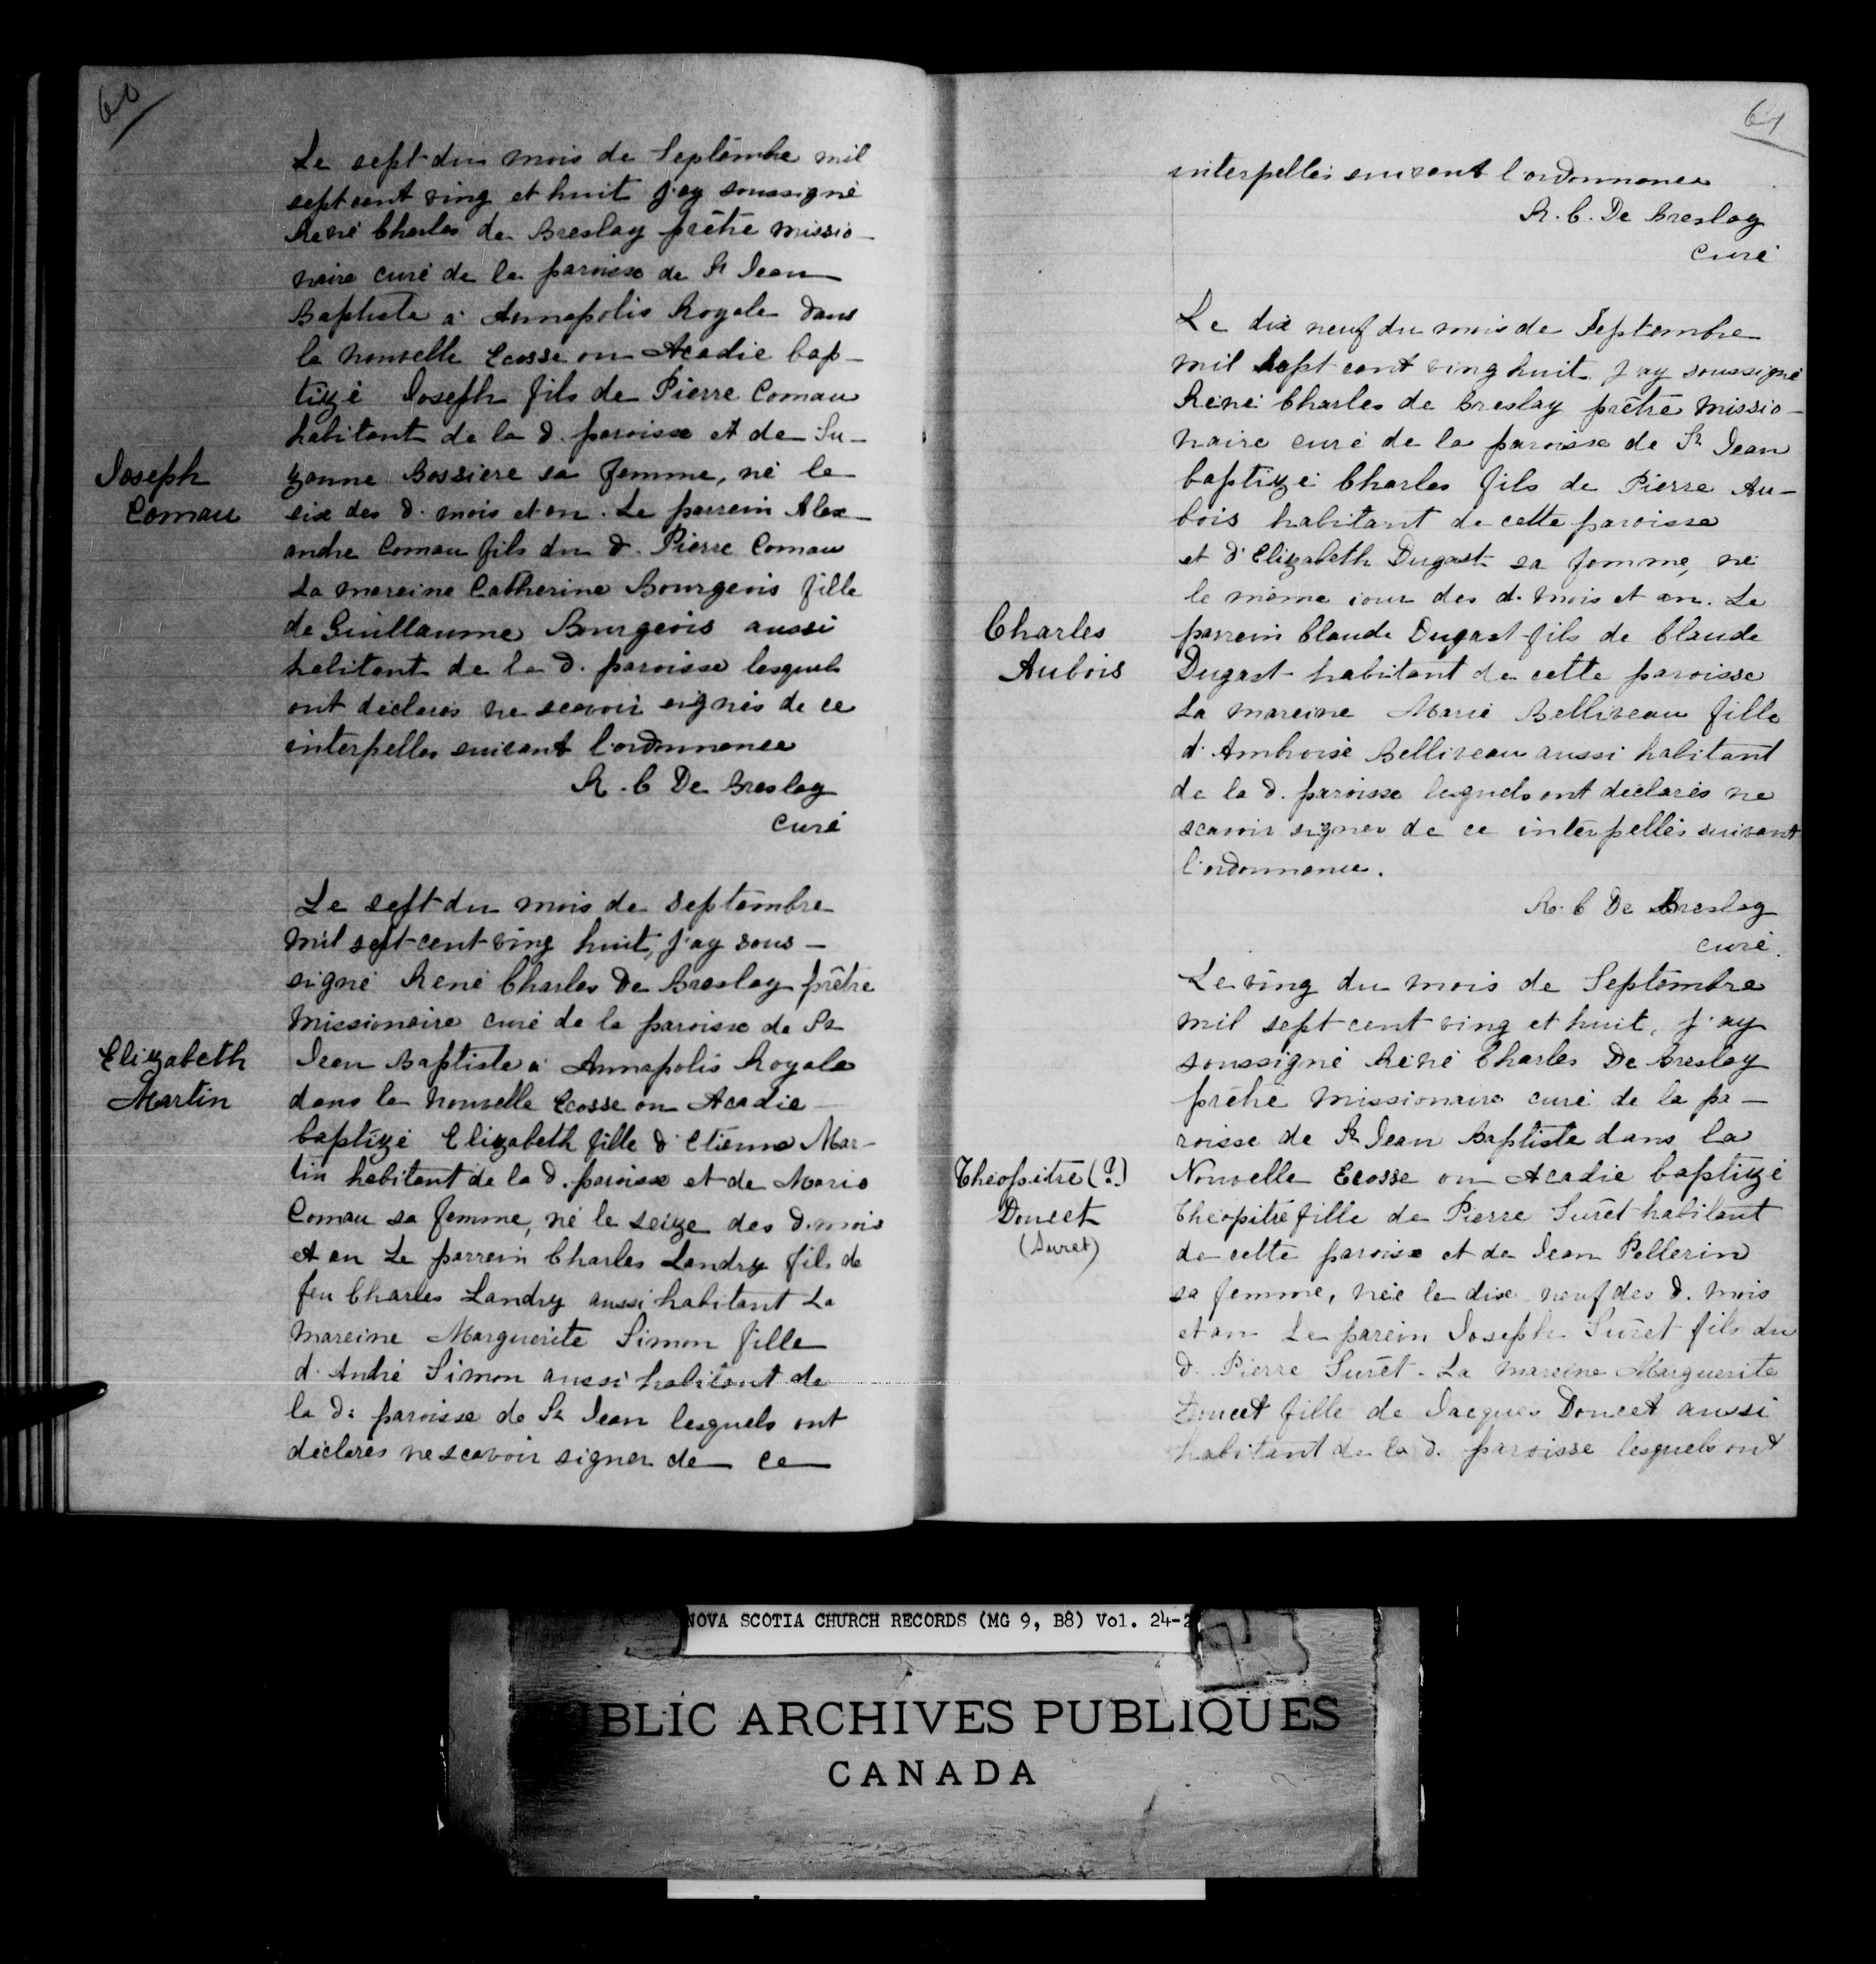 60
Le sept du mois de Septembre mil
sept cent ving et huit j'ay soussigné
René Charles de Breslay prêtre missio-
naire curé de la paroisse de St Jean
Baptiste à Annapolis Royale dans
la nouvelle Ecosse ou Acadie bap-
tizé Joseph fils de Pierre Comau
habitant de la d. paroisse et de Su-
Joseph
Comau
zanne Bossiere sa femme, né le
six des d. mois et an. Le parrein Alex-
andre Comau fils du d. Pierre Comau
La mareine Catherine Bourgeois fille
de Guillaume Bourgeois aussi
habitant de la d. paroisse lesquels
ont déclarés ne scavoir signés de ce
interpellés suivant l'ordonnance
R. C De Breslay
curé
Le sept du mois de Septembre
mil sept cent ving huit, j'ay sous-
signé René Charles De Breslay prêtre
missionaire curé de la paroisse de St
Elizabeth
Martin
Jean Baptiste à Annapolis Royale
dans la nouvelle Ecosse ou Acadie
baptizé Elizabeth fille d'Etienne Mar-
tin habitant de la d. paroisse et de Marie
Comau sa femme, né le seize des d. mois
et an Le parrein Charles Landry fils de
feu Charles Landry aussi habitant La
mareine Marguerite Simon fille
d'André Simon aussi habitant de
la d: paroisse de St Jean lesquels ont
déclarés ne scavoir signer de ce
61
interpellés suivant l'ordonnance
R. C. De Breslay
curé
Le dix neuf du mois de Septembre
mil sept cent ving huit j'ay soussigné
René Charles de Breslay prêtre missio-
naire curé de la paroisse de St Jean
baptizé Charles fils de Pierre Au-
bois habitant de cette paroisse
et d'Elizabeth Dugast sa femme, né
le même jour des d. mois et an. Le
Charles
Aubois
parrein Claude Dugast fils de Claude
Dugast habitant de cette paroisse
La mareine Marie Belliveau fille
d'Ambroise Belliveau aussi habitant
de la d. paroisse lesquels ont déclarés ne
scavoir signer de ce interpellés suivant
l'ordonnance.
R. C De Breslay
curé.
Le ving du mois de Septembre
mil sept cent ving et huit, j'ay
soussigné René Charles De Breslay
prêtre missionaire curé de la pa-
roisse de St Jean Baptiste dans la
Théopitre (?)
Doucet
(Suret)
Nouvelle Ecosse ou Acadie baptizé
Théopitre fille de Pierre Surêt habitant
de cette paroisse et de Jean Pellerin
sa femme, née le dix neuf des d. mois
et an Le parein Joseph Surêt fils du
d. Pierre Surêt. La mareine Marguerite
Doucet fille de Jacques Doucet aussi
habitant de la d. paroisse lesquels ont
NOVA SCOTIA CHURCH RECORDS (MG 9, B8) Vol. 24-2
BLIC ARCHIVES PUBLIQUES
CANADA